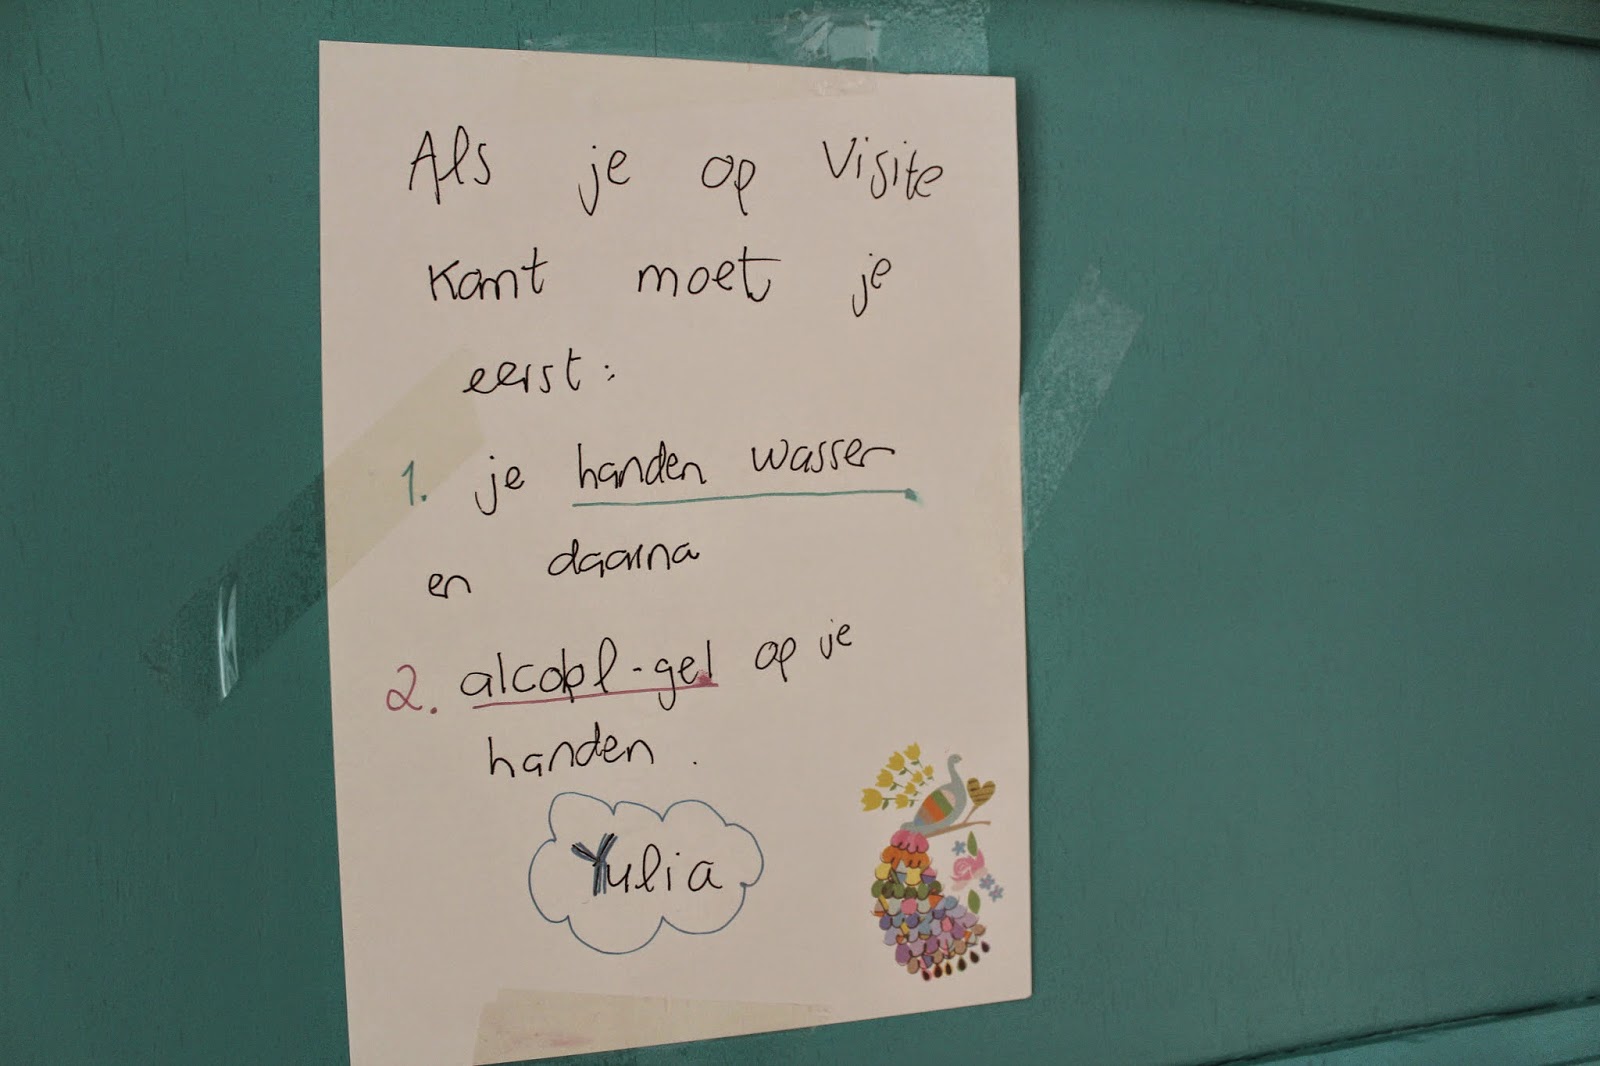 Als je op Visite
komt moet je
eerst:
1. je handen wassen
en daarna
2. alcohol-gel op je
handen.
Yulia